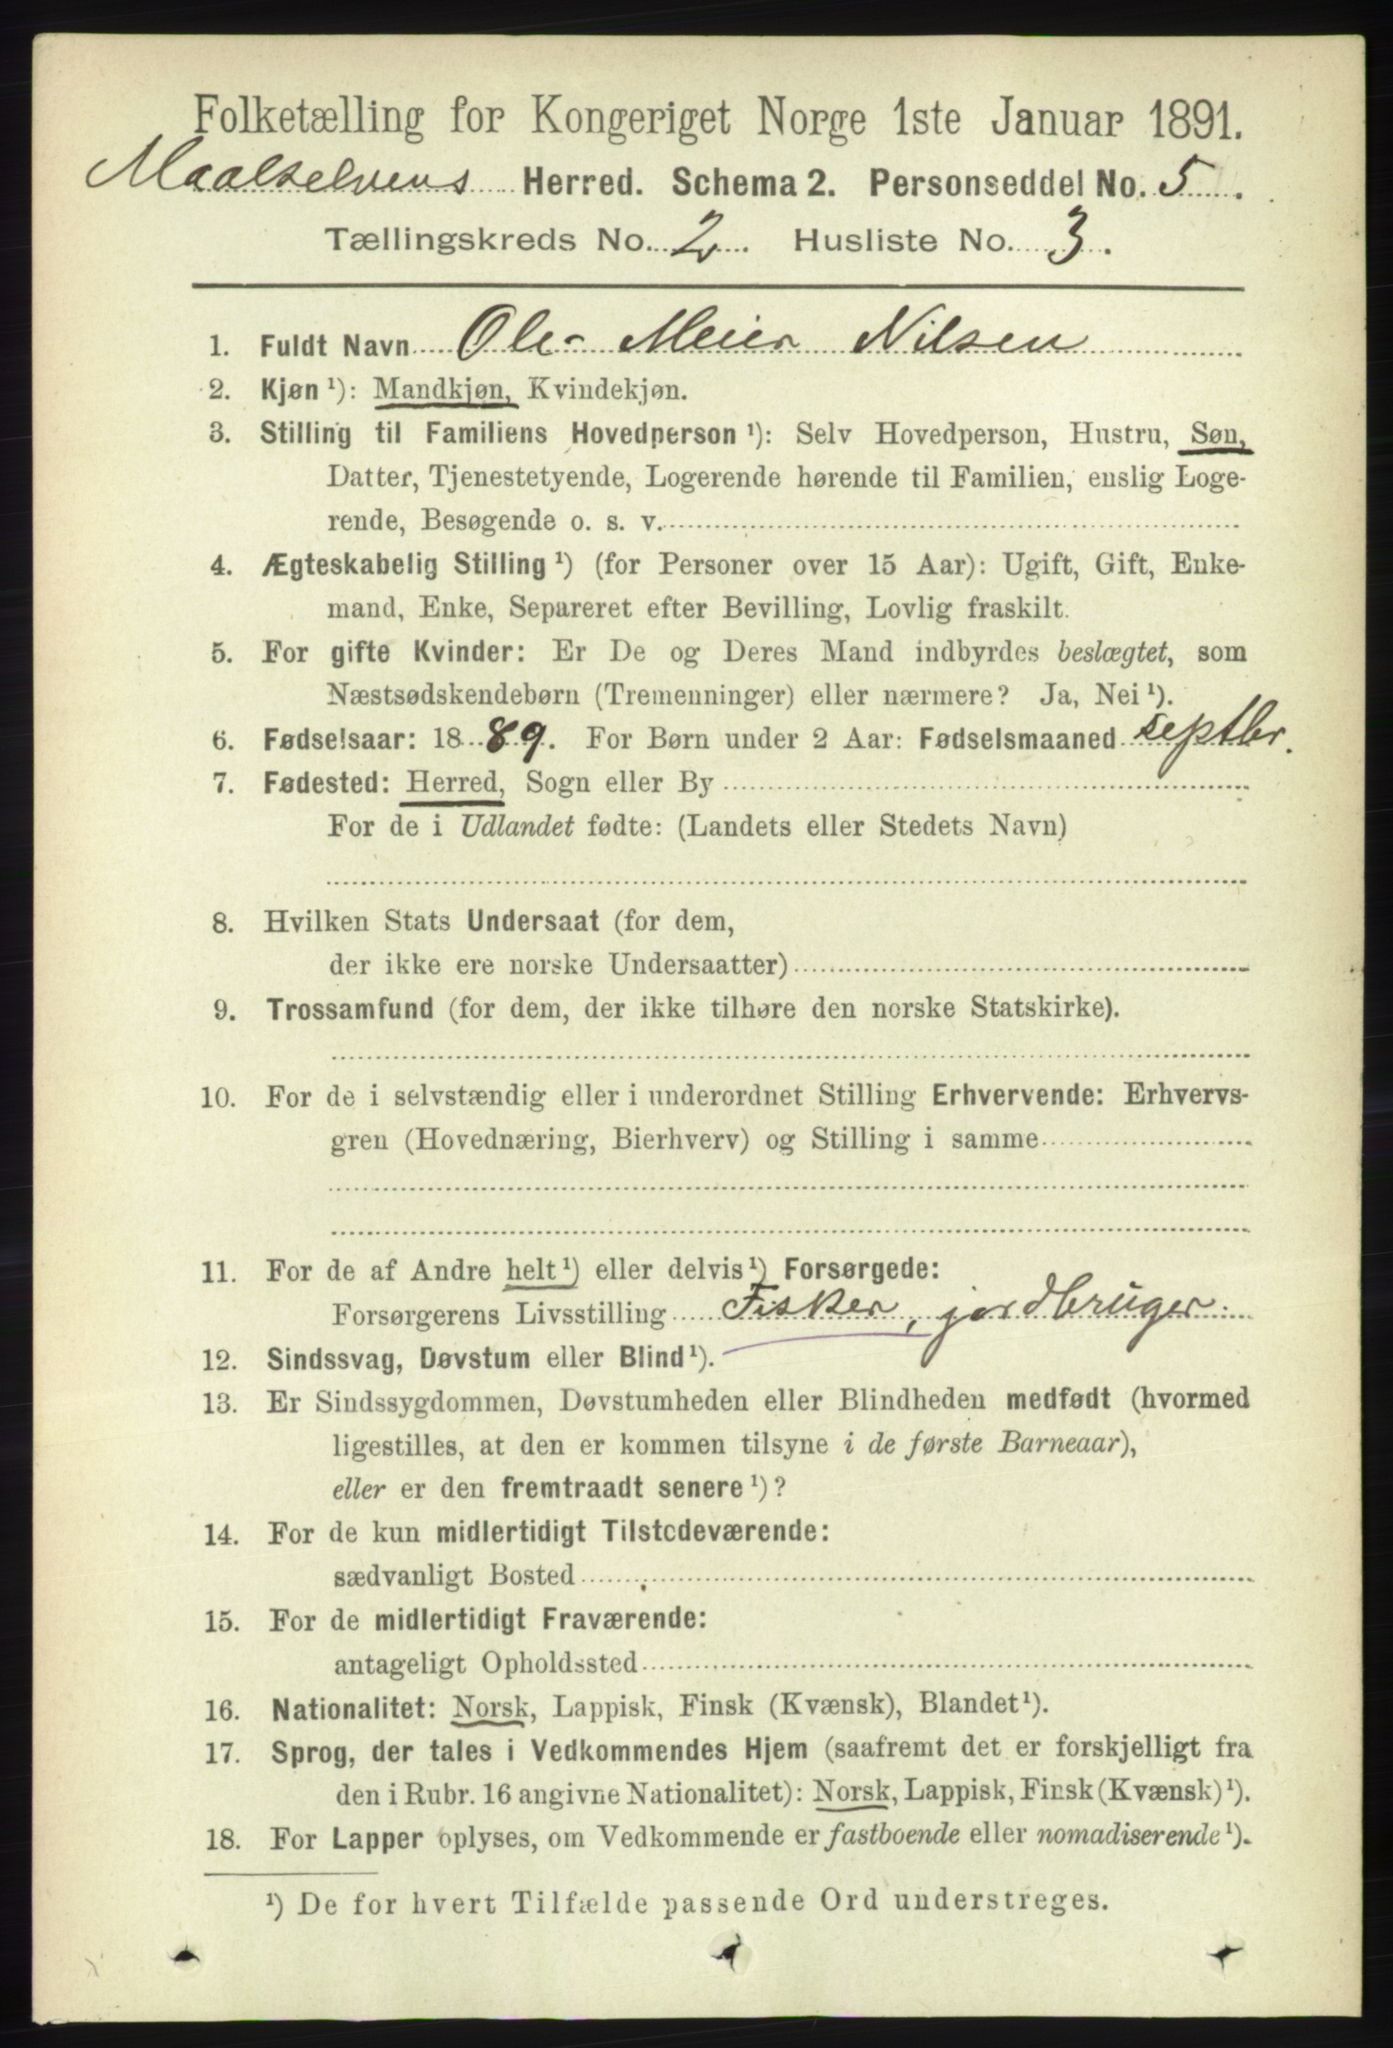 Folketælling for Kongeriget Norge 1ste Januar 1891.
Maalselvens Herred. Schema 2. Personseddel No. 5.
Tællingskreds No. 2. Husliste No. 3.
1. Fuldt Navn Ole Meier Nilsen
2. Kjøn ¹): Mandkjøn, Kvindekjøn.
3. Stilling til Familiens Hovedperson ¹): Selv Hovedperson, Hustru, Søn,
Datter, Tjenestetyende, Logerende hørende til Familien, enslig Loge-
rende, Besøgende o. s. v.
4. Ægteskabelig Stilling ¹) (for Personer over 15 Aar): Ugift, Gift, Enke-
mand, Enke, Separeret efter Bevilling, Lovlig fraskilt.
5. For gifte Kvinder: Er De og Deres Mand indbyrdes beslægtet, som
Næstsødskendebørn (Tremenninger) eller nærmere? Ja, Nei ¹).
6. Fødselsaar: 1889. For Børn under 2 Aar: Fødselsmaaned septbr.
7. Fødested: Herred, Sogn eller By
For de i Udlandet fødte: (Landets eller Stedets Navn)
8. Hvilken Stats Undersaat (for dem,
der ikke ere norske Undersaatter)
9. Trossamfund (for dem, der ikke tilhøre den norske Statskirke).
10. For de i selvstændig eller i underordnet Stilling Erhvervende: Erhvervs-
gren (Hovednæring, Bierhverv) og Stilling i samme
11. For de af Andre helt ¹) eller delvis ¹) Forsørgede:
Forsørgerens Livsstilling Fisker, jordbruger.
12. Sindssvag, Døvstum eller Blind ¹).
13. Er Sindssygdommen, Døvstumheden eller Blindheden medfødt (hvormed
ligestilles, at den er kommen tilsyne i de første Barneaar),
eller er den fremtraadt senere ¹)?
14. For de kun midlertidigt Tilstedeværende:
sædvanligt Bosted
15. For de midlertidigt Fraværende:
antageligt Opholdssted
16. Nationalitet: Norsk, Lappisk, Finsk (Kvænsk), Blandet ¹).
17. Sprog, der tales i Vedkommendes Hjem (saafremt det er forskjelligt fra
den i Rubr. 16 angivne Nationalitet): Norsk, Lappisk, Finsk (Kvænsk) ¹).
18. For Lapper oplyses, om Vedkommende er fastboende eller nomadiserende ¹).
¹) De for hvert Tilfælde passende Ord understreges.